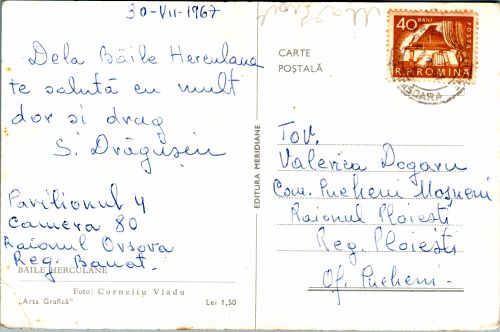 30-VII-1967
Dela Băile Herculana
te salută cu mult
dor si drag
S. Drăgusin
Pavilionul 4
Camera 80
Raionul Orsova
Reg. Banat.
BĂILE HERCULANE
Foto: Corneliu Vladu
„Arta Grafică"
Lei 1,50
EDITURA MERIDIANE
CARTE
POŞTALĂ
40 BANI
POSTA
R.P.ROMINA
Tov.
Valerica Dogaru
Com. Pucheni Moşneni
Raionul Ploieşti
Reg. Ploieşti
Of. Pucheni